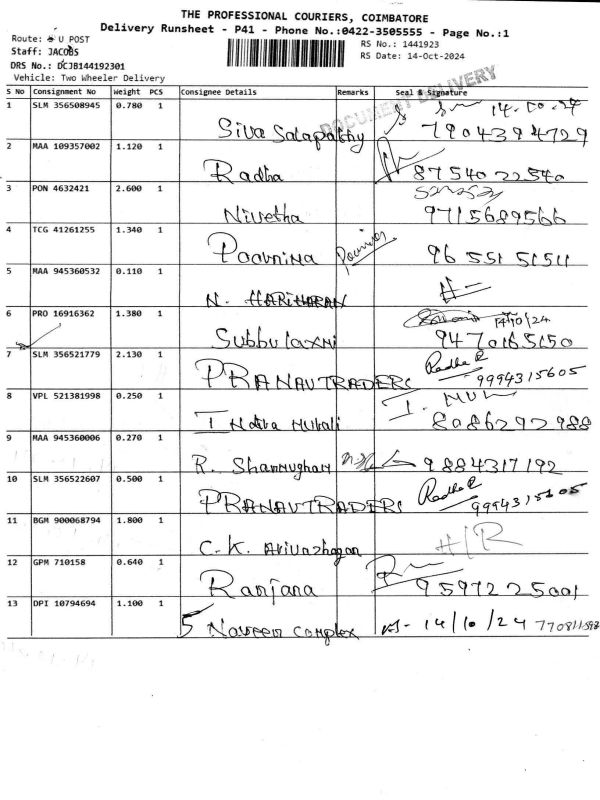 THE PROFESSIONAL COURIERS, COIMBATORE
Delivery Runsheet - P41 - Phone No.:0422-3505555 - Page No.:1
Route: U POST
RS No.: 1441923
Staff: JACOBS
RS Date: 14-Oct-2024
DRS No.: DCJB144192301
Vehicle: Two Wheeler Delivery
DOCUMENT DELIVERY
S No Consignment No Weight PCS Consignee Details Remarks Seal & Signature
1 SLM 356508945 0.780 1 Siva Salapathy 14-10-24
7904394729
2 MAA 109357002 1.120 1 Radha 87540 22540
3 PON 4632421 2.600 1 Nivetha 9715689566
4 TCG 41261255 1.340 1 Poornima Poornima 96 551 51511
5 MAA 945360532 0.110 1 N. HARIHARAN
6 PRO 16916362 1.380 1 Subbulaxmi 14/10/24
9470165150
7 SLM 356521779 2.130 1 PRANAV TRADERS Radha R
9994315605
8 VPL 521381998 0.250 1 Indira Murali 8086292988
9 MAA 945360006 0.270 1 R. Shanmugham 9884317192
10 SLM 356522607 0.500 1 PRANAV TRADERS Radha R
9994315605
11 BGM 900068794 1.800 1 C.K. Arivazhagan H/R
12 GPM 710158 0.640 1 Ranjana 9597225001
13 DPI 10794694 1.100 1 5 Naveen Complex 14/10/24